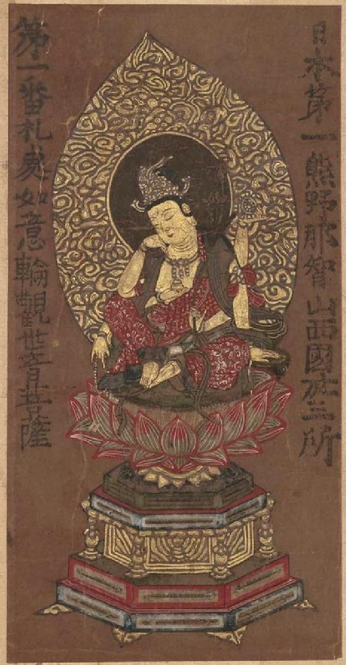 日本第一熊野那智山西國卅三所
第一番札所如意輪觀世音菩薩